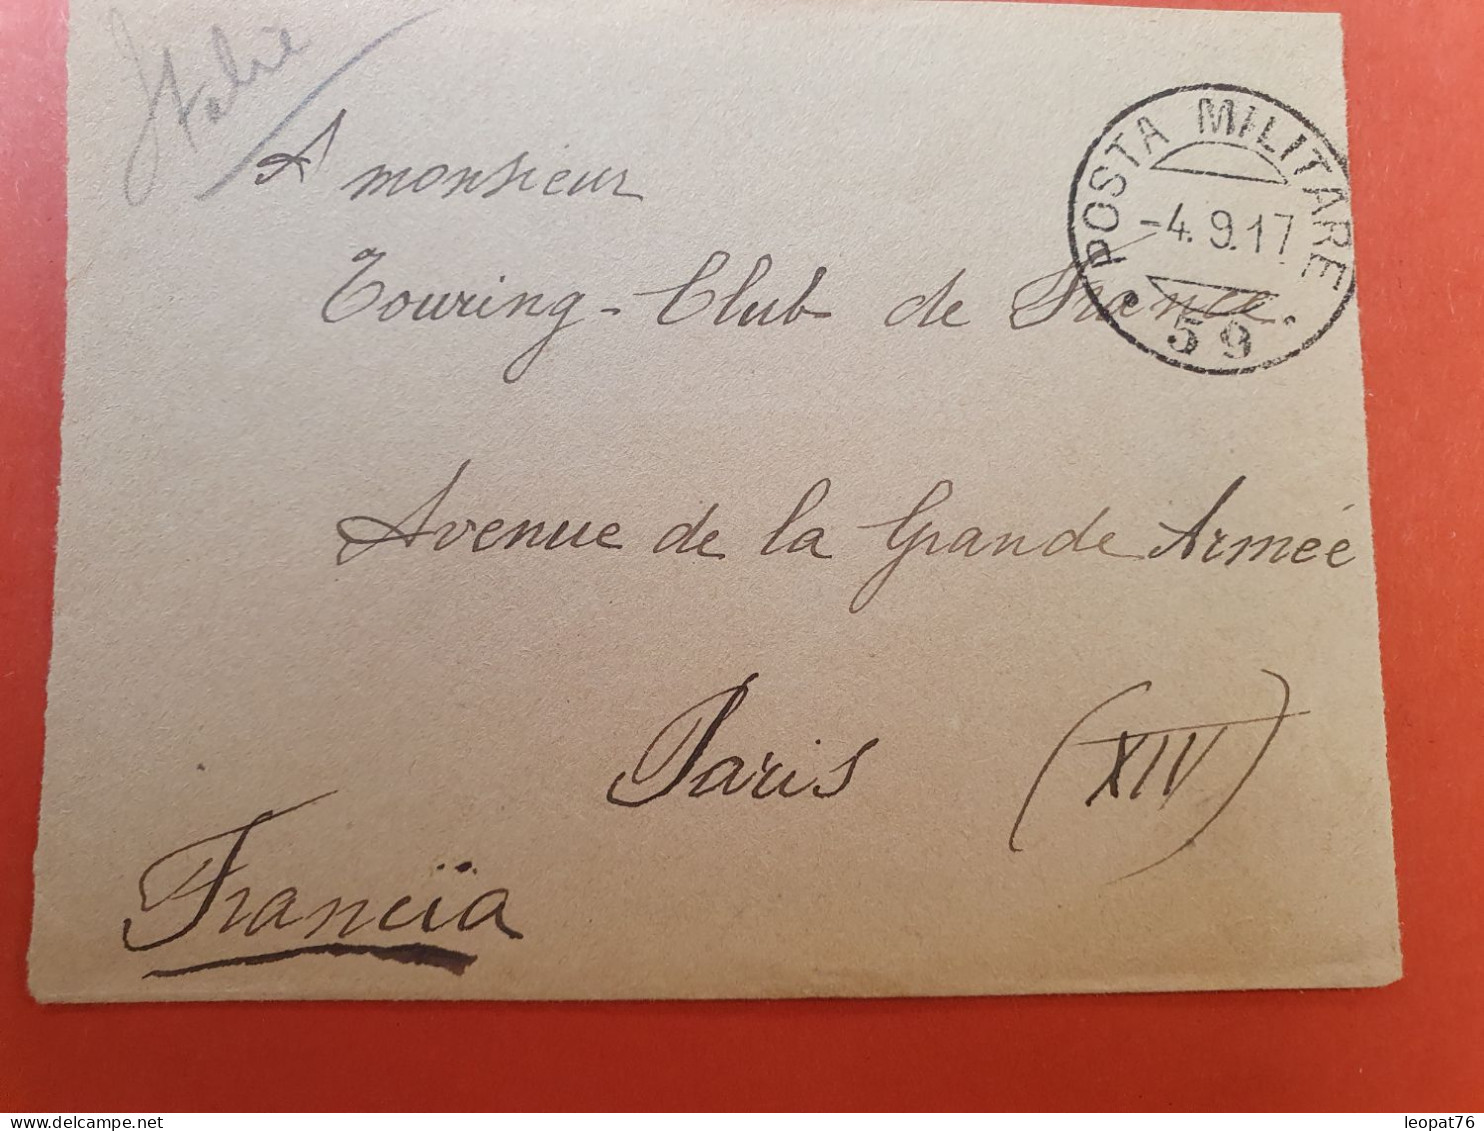 Italie
A monsieur
Touring-Club de France
Avenue de la Grande Armée
Paris (XIV)
Francïa
POSTA MILITARE
-4.9.17
59
delcampe.net
leopat76